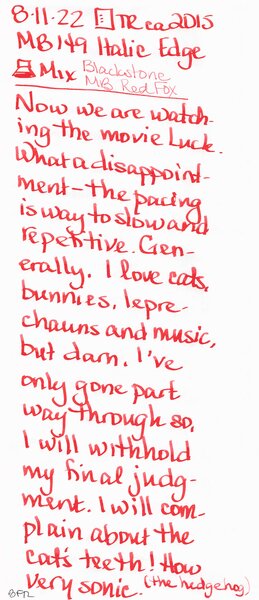 8·11·22 TR ca 2015
MB 149 Italic Edge
Mix Blackstone
MB Red Fox
Now we are watch-
ing the movie Luck.
What a disappoint-
ment - the pacing
is way to slow and
repetitive. Gen-
erally, I love cats,
bunnies, lepre-
chauns and music,
but darn, I've
only gone part
way through so,
I will withhold
my final judg-
ment. I will com-
plain about the
cat's teeth! How
very sonic. (the hedgehog)